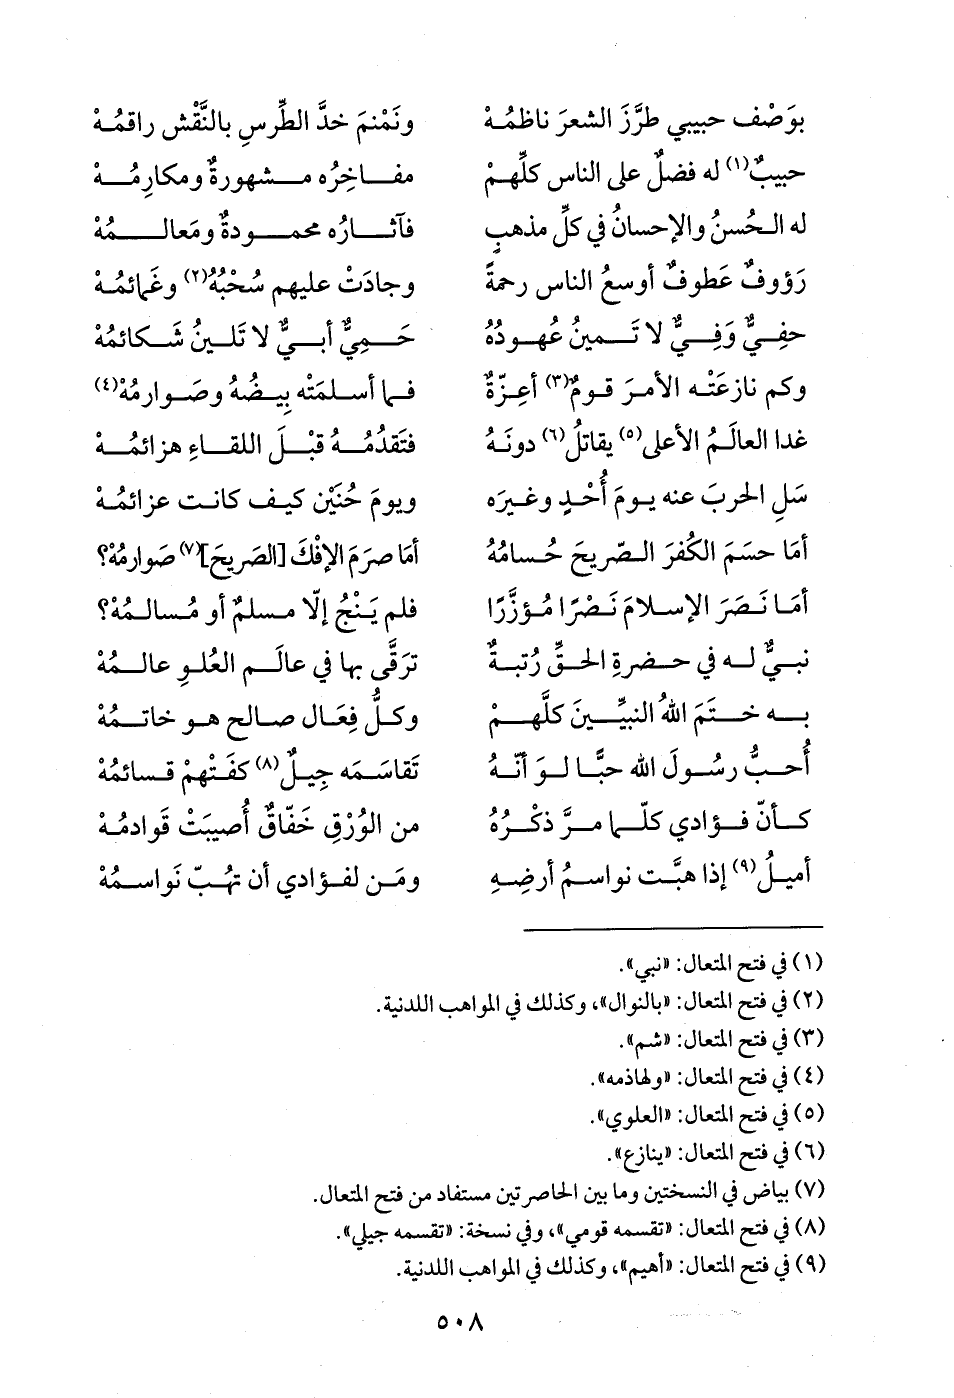 بوَصْف حبيبي طرَّزَ الشعرَ ناظمُهْ ونَمْنمَ خدَّ الطِّرسِ بالنَّقْش راقمُهْ
حبيبٌ(١) له فضلٌ على الناس كلِّهمْ مفاخِرُه مشهورةٌ ومكارِمُهْ
له الحُسنُ والإحسانُ في كلِّ مذهبٍ فآثارُه محمودةٌ ومَعالمُهْ
رَؤوفٌ عَطوفٌ أوسعُ الناس رحمةً وجادَتْ عليهم سُحْبُهُ(٢) وغَمائمُهْ
حفِيٌّ وَفِيٌّ لا تَمينُ عُهودُهُ حَمِيٌّ أبيٌّ لا تَلينُ شَكائمُهْ
وكم نازعَتْه الأمرَ قومٌ(٣) أعِزّةٌ فما أسلمَتْه بِيضُهُ وصَوارمُهْ(٤)
غدا العالَمُ الأعلى(٥) يقاتلُ(٦) دونَهُ فتَقدُمُهُ قبْلَ اللقاءِ هزائمُهْ
سَلِ الحربَ عنه يومَ أُحْدٍ وغيرَه ويومَ حُنَيْن كيف كانت عزائمُهْ
أمَا حسَمَ الكُفرَ الصّريحَ حُسامُهُ أمَا صرَمَ الإفْكَ [الصَريحَ](٧) صَوارمُهْ؟
أمَا نَصَرَ الإسلامَ نَصْرًا مُؤزَّرًا فلم يَنْجُ إلّا مسلمٌ أو مُسالمُهْ؟
نبيٌّ له في حضرةِ الحقِّ رُتبةٌ ترَقَّى بها في عالَم العُلوِ عالمُهْ
به ختَمَ اللهُ النبيِّينَ كلَّهمْ وكلُّ فِعَال صالح هو خاتمُهْ
أُحبُّ رسُولَ الله حبًّا لوَ انّهُ تَقاسَمَه جِيلٌ(٨) كفَتْهمْ قسائمُهْ
كأنّ فؤادي كلّما مرَّ ذكْرُهُ من الوُرْقِ خَفّاقٌ أُصيبَتْ قَوادمُهْ
أميلُ(٩) إذا هبَّت نواسمُ أرضِهِ ومَن لفؤادي أن تهُبّ نَواسمُهْ
(١) في فتح المتعال: «نبي».
(٢) في فتح المتعال: «بالنوال»، وكذلك في المواهب اللدنية.
(٣) في فتح المتعال: «شم».
(٤) في فتح المتعال: «ولهاذمه».
(٥) في فتح المتعال: «العلوي».
(٦) في فتح المتعال: «ينازع».
(٧) بياض في النسختين وما بين الحاصرتين مستفاد من فتح المتعال.
(٨) في فتح المتعال: «تقسمه قومي»، وفي نسخة: «تقسمه جيلي».
(٩) في فتح المتعال: «أهيم»، وكذلك في المواهب اللدنية.
٥٠٨